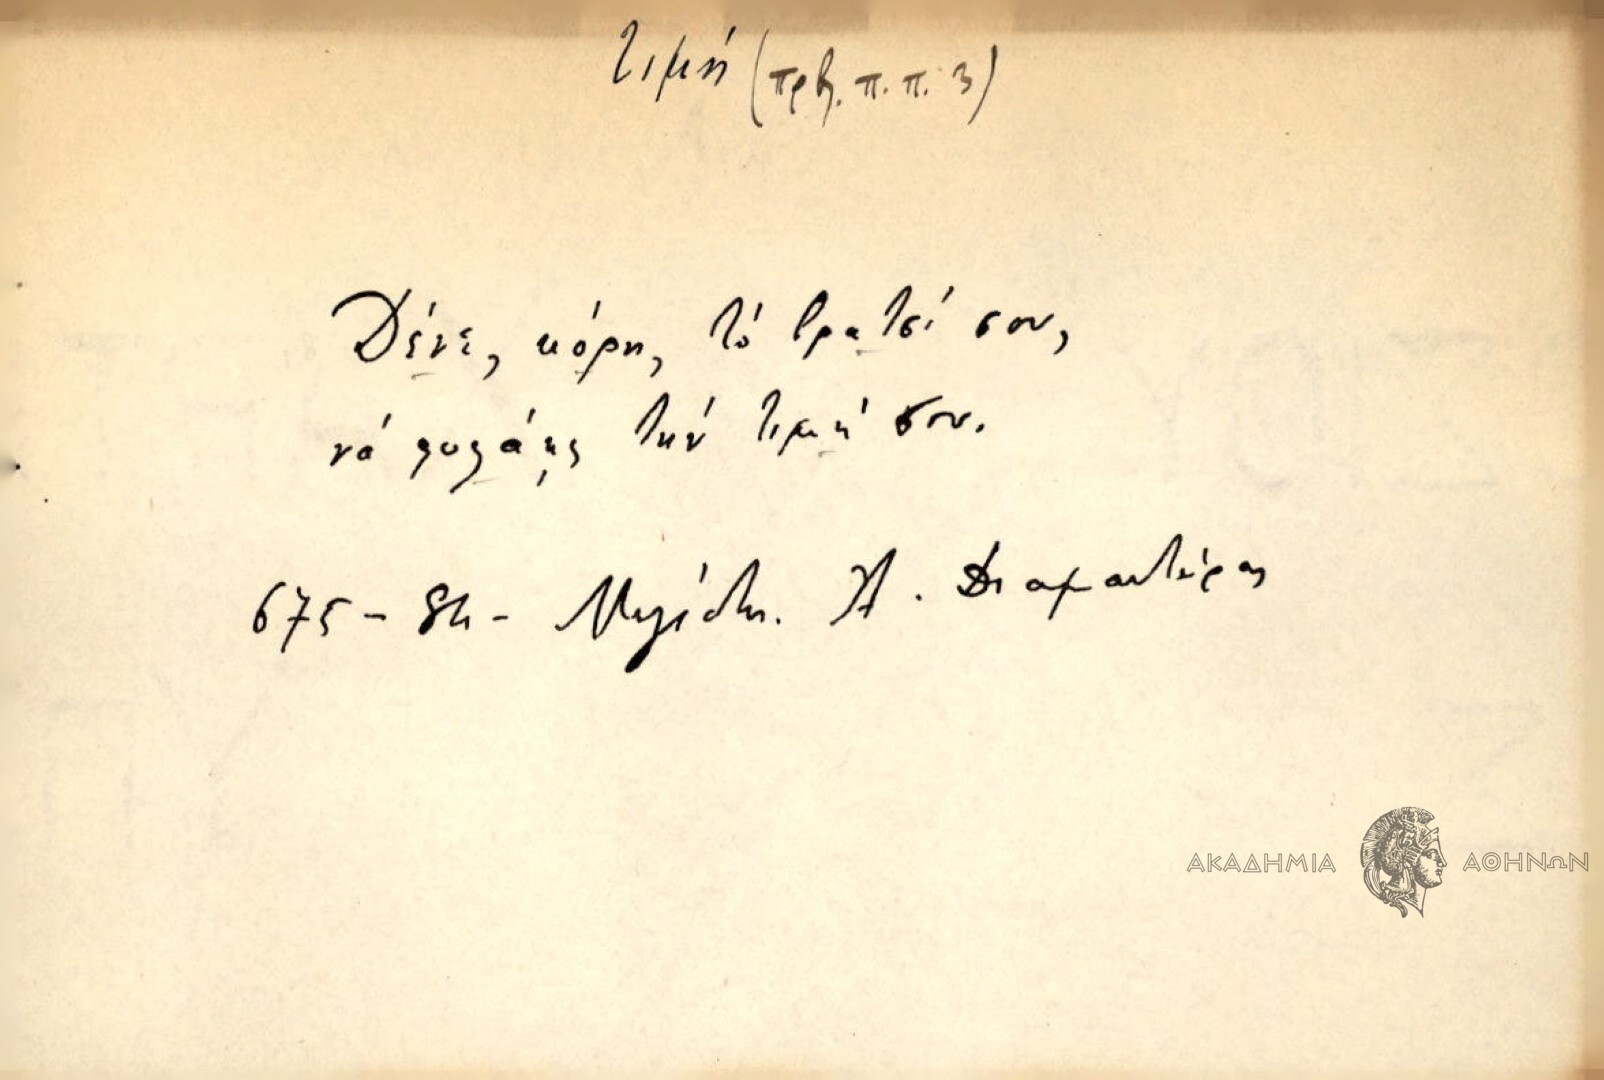 τιμή (πρβ. π. π. 3)
Δένε, κόρη, τό βρατσί σου,
νά φυλάῃς τήν τιμή σου.
675 - - Μεγίστη. Ἀ. Διαμαντάρας
ΑΚΑΔΗΜΙΑ ΑΘΗΝΩΝ